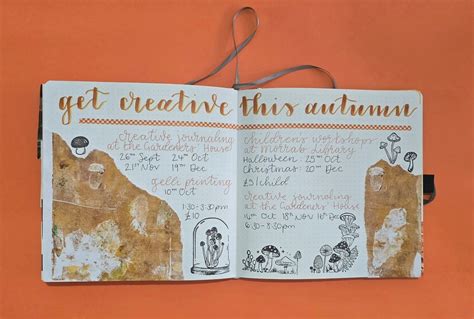 get creative this autumn
creative journaling
at the Gardeners' House
26TH Sept 24TH Oct
21ST Nov 19TH Dec
gelli printing
10TH Oct
1:30-3:30PM
£10
children's workshops
at Morrab Library
Halloween 25TH Oct
Christmas 20TH Dec
£3/child
creative journaling
at the Gardeners' House
14TH Oct 18TH Nov 16TH Dec
6:30-8:30pm